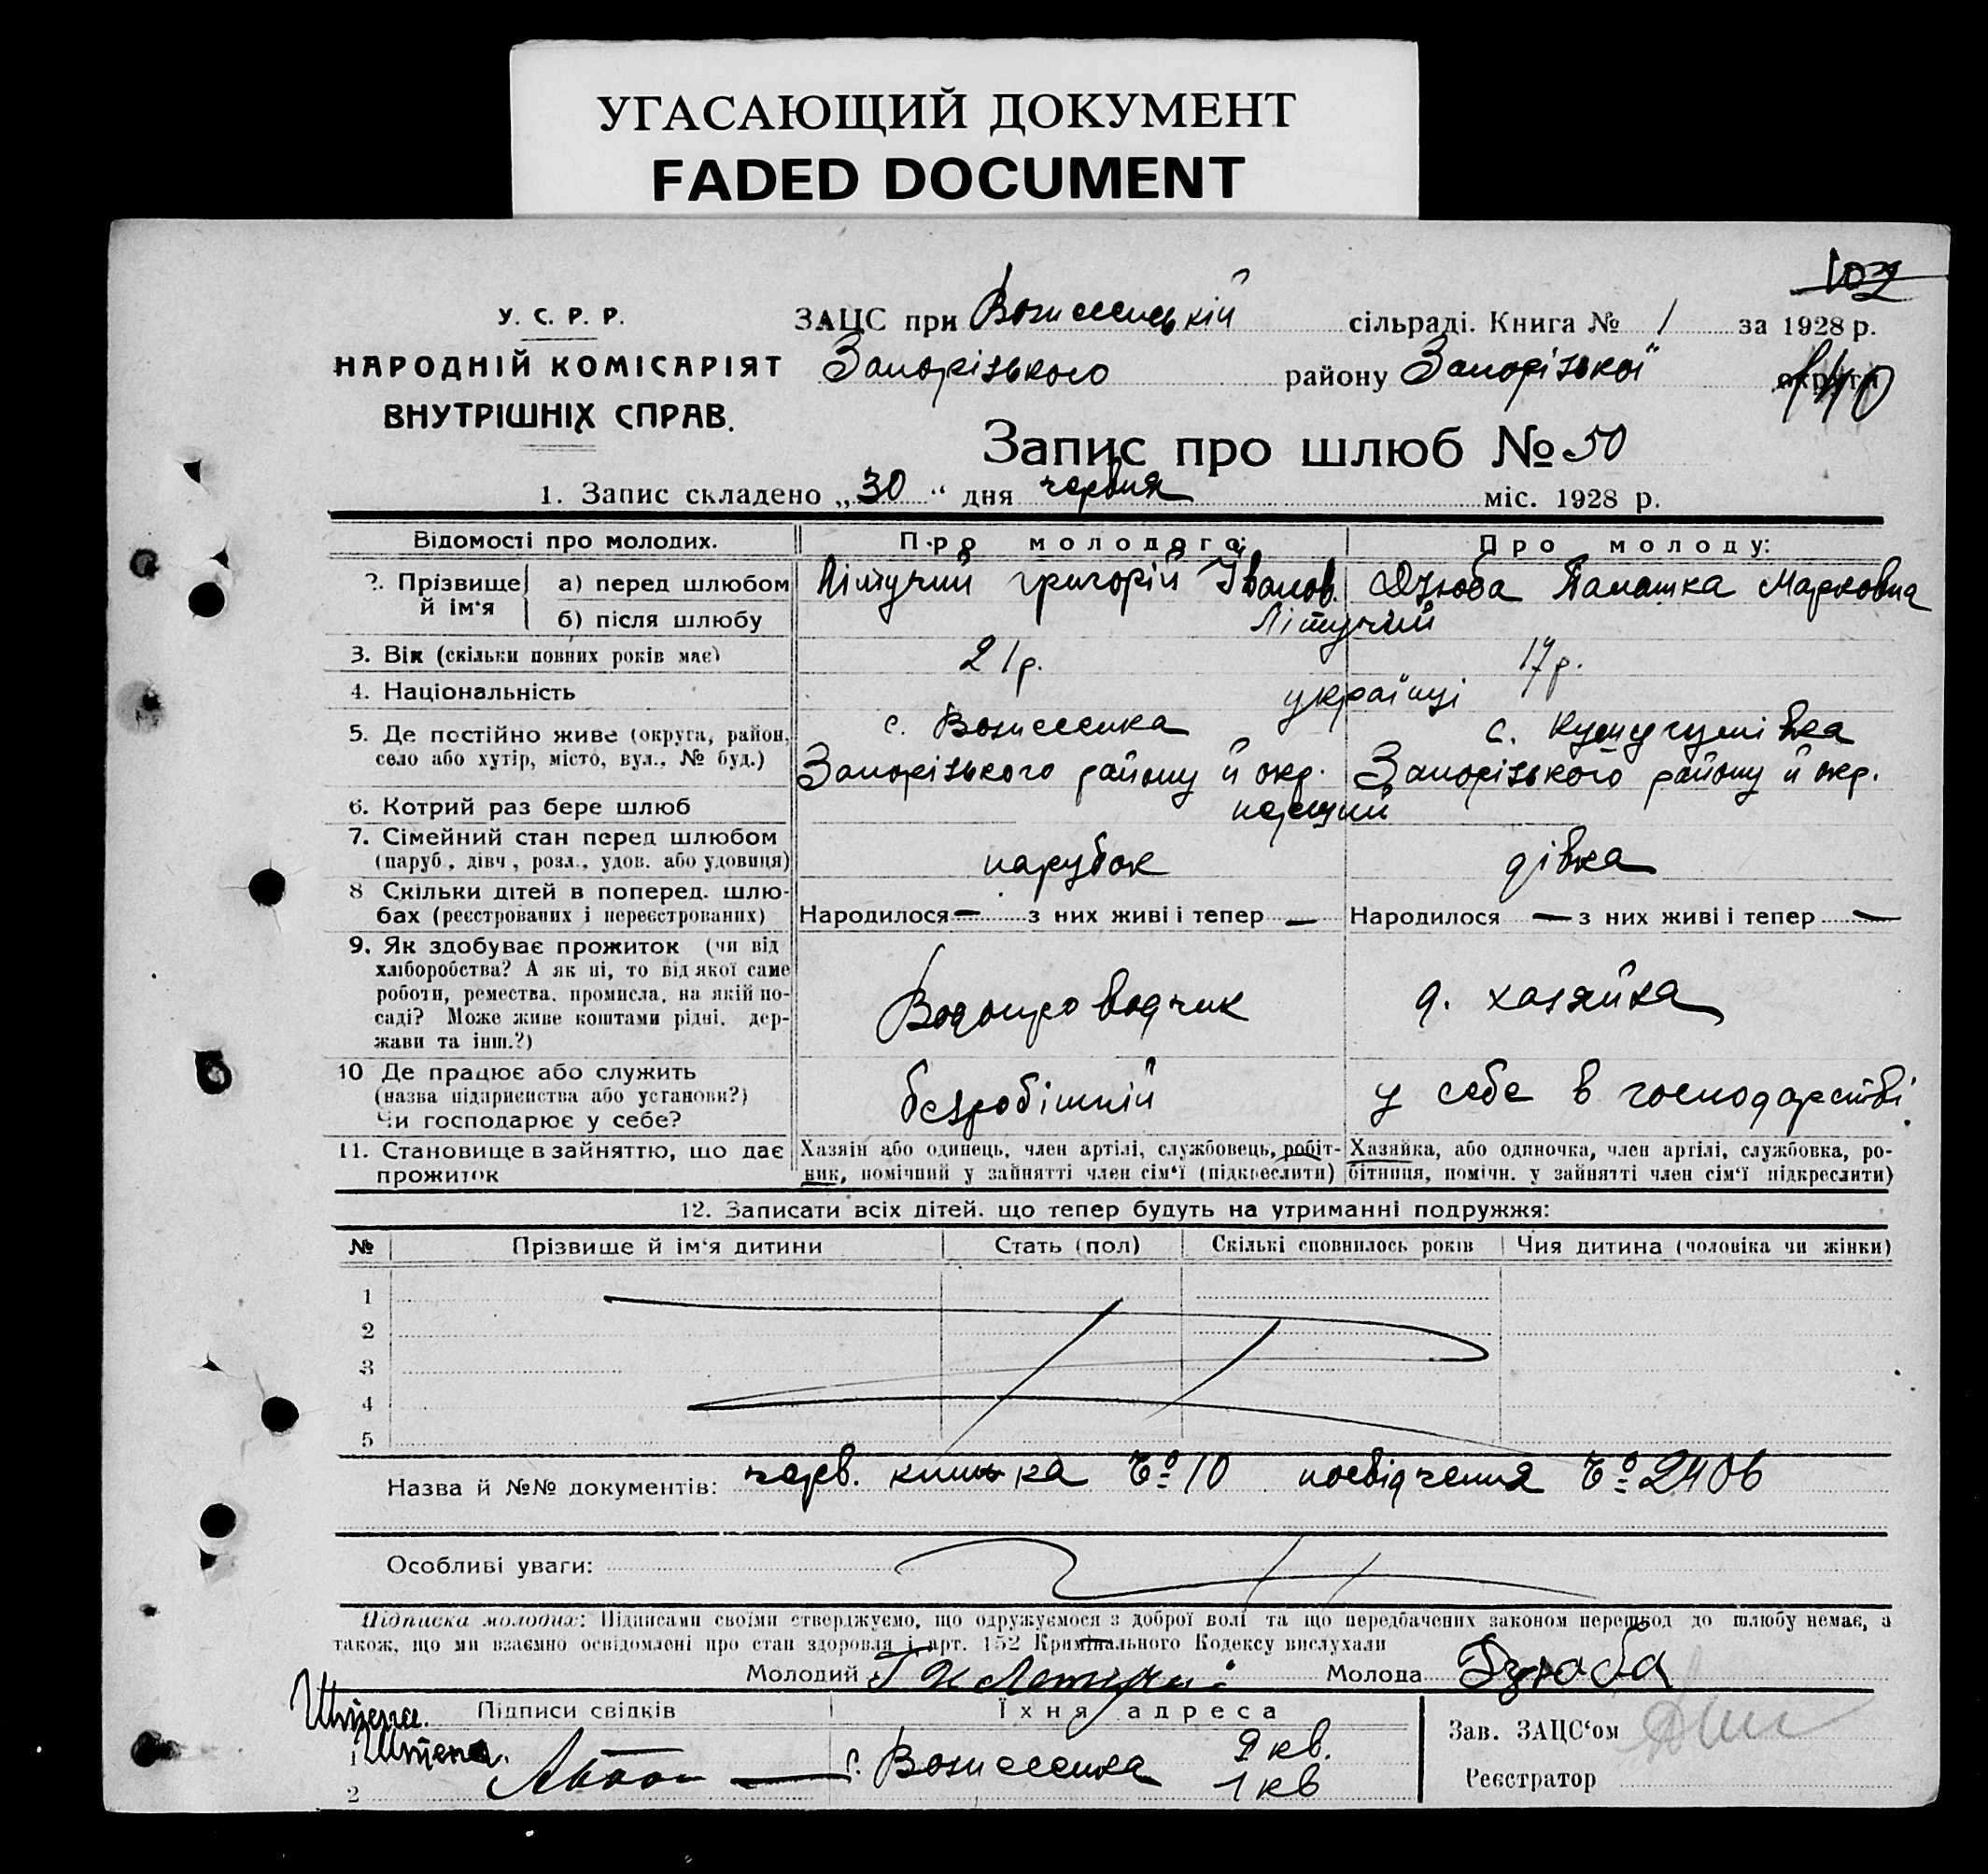 УГАСАЮЩИЙ ДОКУМЕНТ
FADED DOCUMENT
102
У. С. Р. Р.
НАРОДНІЙ КОМІСАРІЯТ
ВНУТРІШНІХ СПРАВ.
ЗАЦС при Вознесенській сільраді. Книга № 1 за 1928 р.
Запорізького району Запорізької округи
140
Запис про шлюб № 50
1. Запис складено „30“ дня червня міс. 1928 р.
Відомості про молодих. Про молодого: Про молоду:
2. Прізвище й ім‘я а) перед шлюбом Літучий Григорій Іванов. Дзюба Палашка Марковна
б) після шлюбу Літучий
3. Вік (скільки повних років має) 21 р. 17 р.
4. Національність українці
5. Де постійно живе (округа, район, с. Вознесенка с. Кушугумівка
село або хутір, місто, вул., № буд.) Запорізького району й окр. Запорізького району й окр.
6. Котрий раз бере шлюб перший
7. Сімейний стан перед шлюбом
(паруб., дівч, розл., удов. або удовиця) парубок дівка
8 Скільки дітей в поперед. шлю-
бах (реєстрованих і нереєстрованих) Народилося — з них живі і тепер — Народилося — з них живі і тепер —
9. Як здобуває прожиток (чи від
хліборобства? А як ні, то від якої саме
роботи, ремества, промисла, на якій по-
саді? Може живе коштами рідні, дер-
жави та інш.?)
Водопроводчик д. хазяйка
10 Де працює або служить
(назва підприємства або установи?)
Чи господарює у себе?
безробітній у себе в господарстві.
11. Становище в зайняттю, що дає прожиток
Хазяін або одинець, член артілі, службовець, робіт-
ник, помічний у зайнятті член сім‘ї (підкреслити)
Хазяйка, або одиночка, член артілі, службовка, ро-
бітниця, помічн. у зайнятті член сім‘ї підкреслити)
12. Записати всіх дітей. що тепер будуть на утриманні подружжя:
№ Прізвище й ім‘я дитини Стать (пол) Скількі сповнилось років Чия дитина (чоловіка чи жінки)
1
2
3
4
5
Назва й №№ документів: черв. книжка № 10 посвідчення № 2406
Особливі уваги:
Підписка молодих: Підписами своїми стверджуємо, що одружуємося з доброї волі та що передбачених законом перешкод до шлюбу немає, а
також, що ми взаємно освідомлені про стан здоровля і арт. 152 Кримінального Кодексу вислухали
Молодий Молода Дзюба
Підписи свідків Їхня адреса Зав. ЗАЦС‘ом
1 с. Вознесенка 9 кв.
2 1 кв
Реєстратор